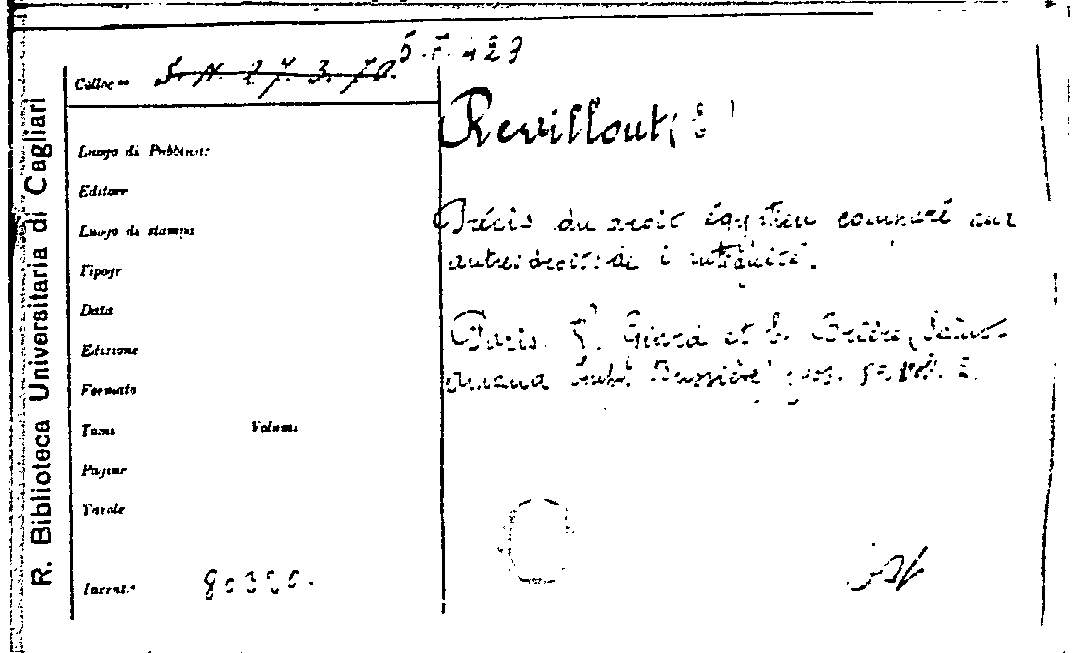 R. Biblioteca Universitaria di Cagliari
Colloc.ne S. N. 27. 3. 70. 5. F. 423
Luogo di Pubblicaz.
Editore
Luogo di stampa
Tipogr
Data
Edizione
Formato
Tomi Volumi
Pagine
Tavole
Invent.°
Revillout, E
Précis du droit égyptien comparé aux
autres droits de l'antiquité.
Paris. V. Giard et E. Brière, Saint
Amand Bussière vol. 2.